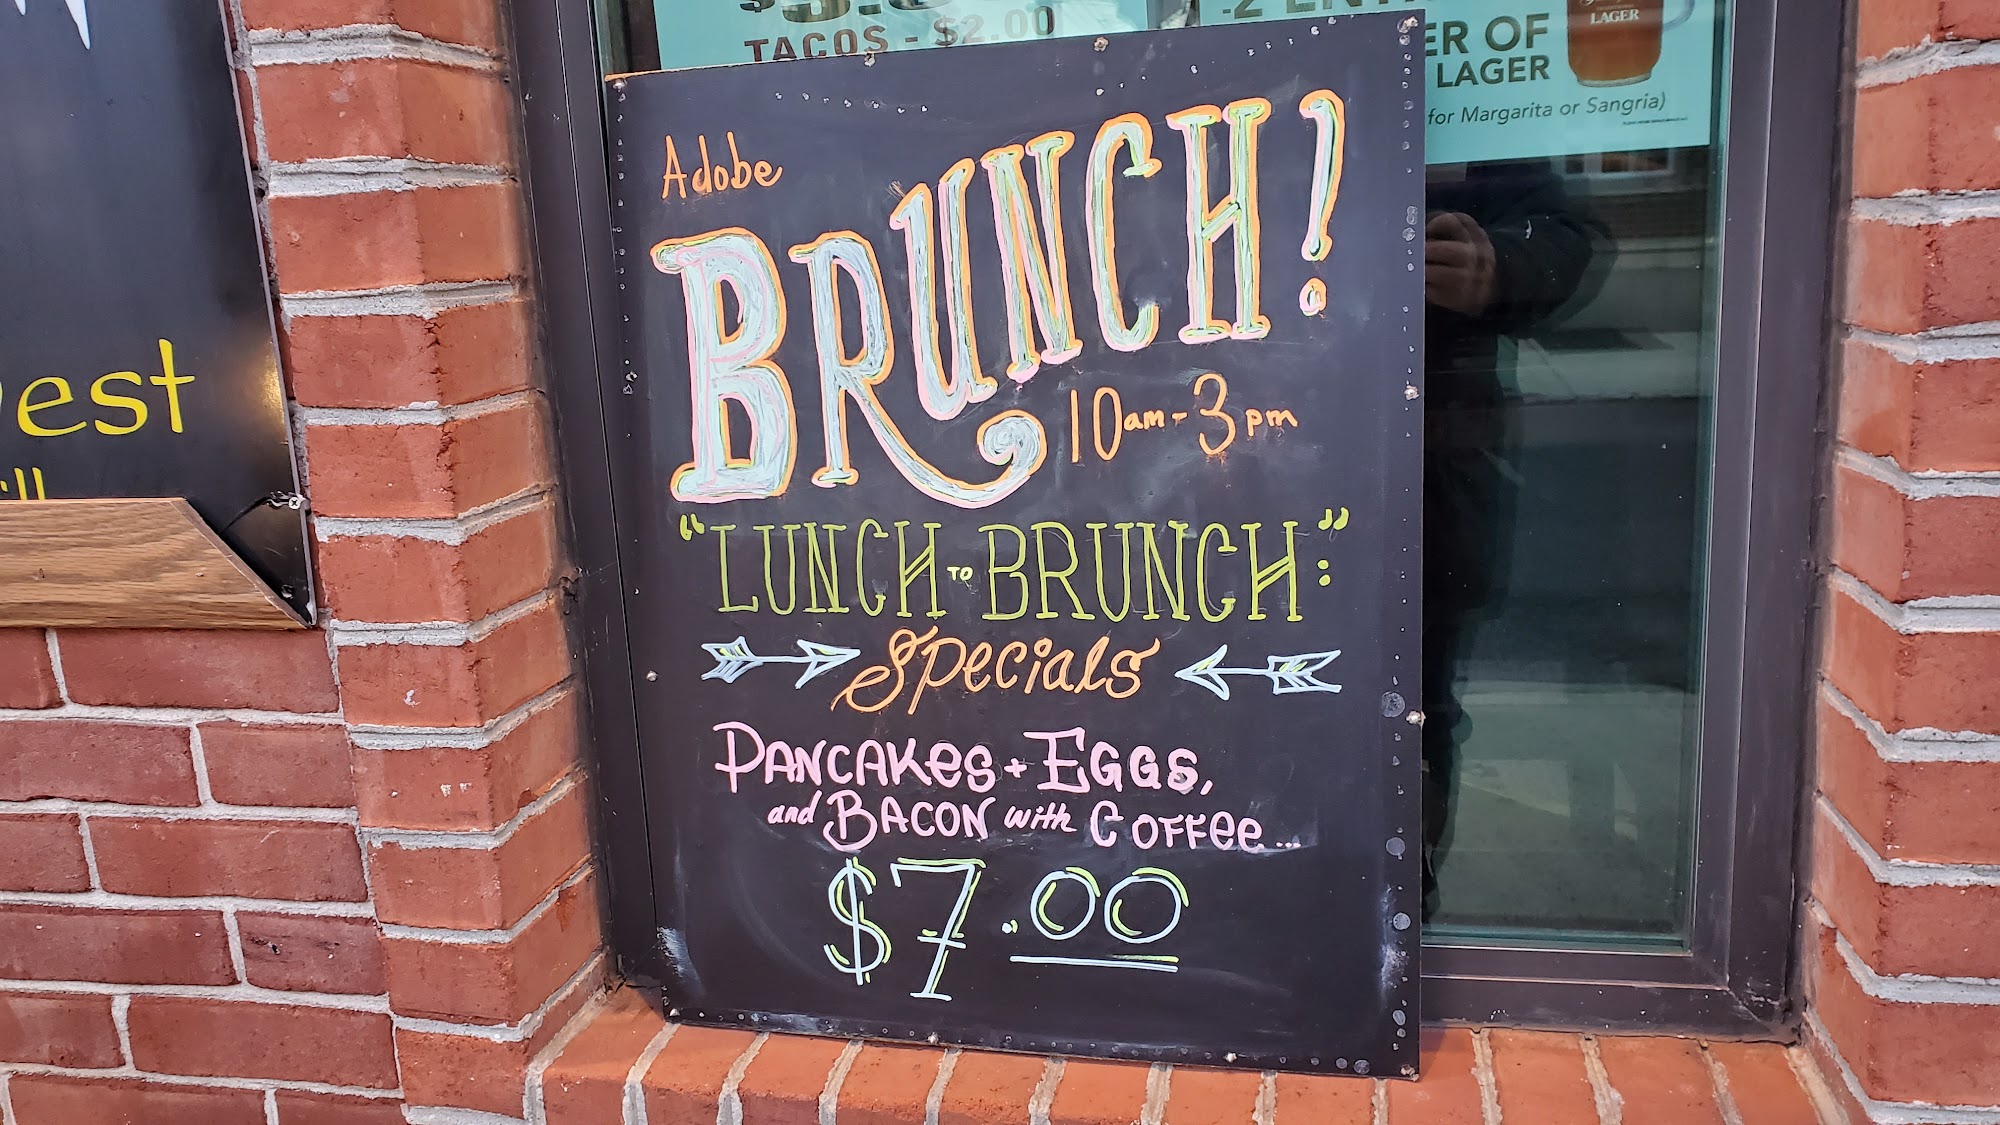 TACOS - $2.00
ER OF
LAGER
LAGER
for Margarita or Sangria)
Adobe
BRUNCH!
10am - 3pm
"LUNCH TO BRUNCH:"
Specials
PANCAKES + EGGS,
and BACON with COFFEE...
$7.00
est